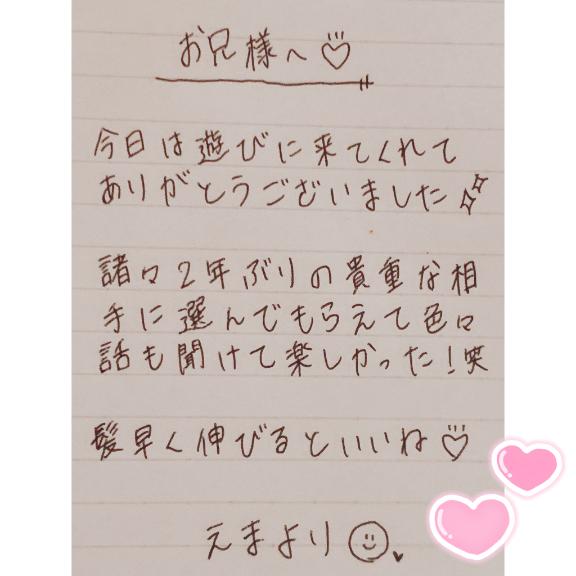 お兄様へ♡
今日は遊びに来てくれて
ありがとうございました
諸々2年ぶりの貴重な相
手に選んでもらえて色々
話も聞けて楽しかった!笑
髪早く伸びるといいね♡
えまより